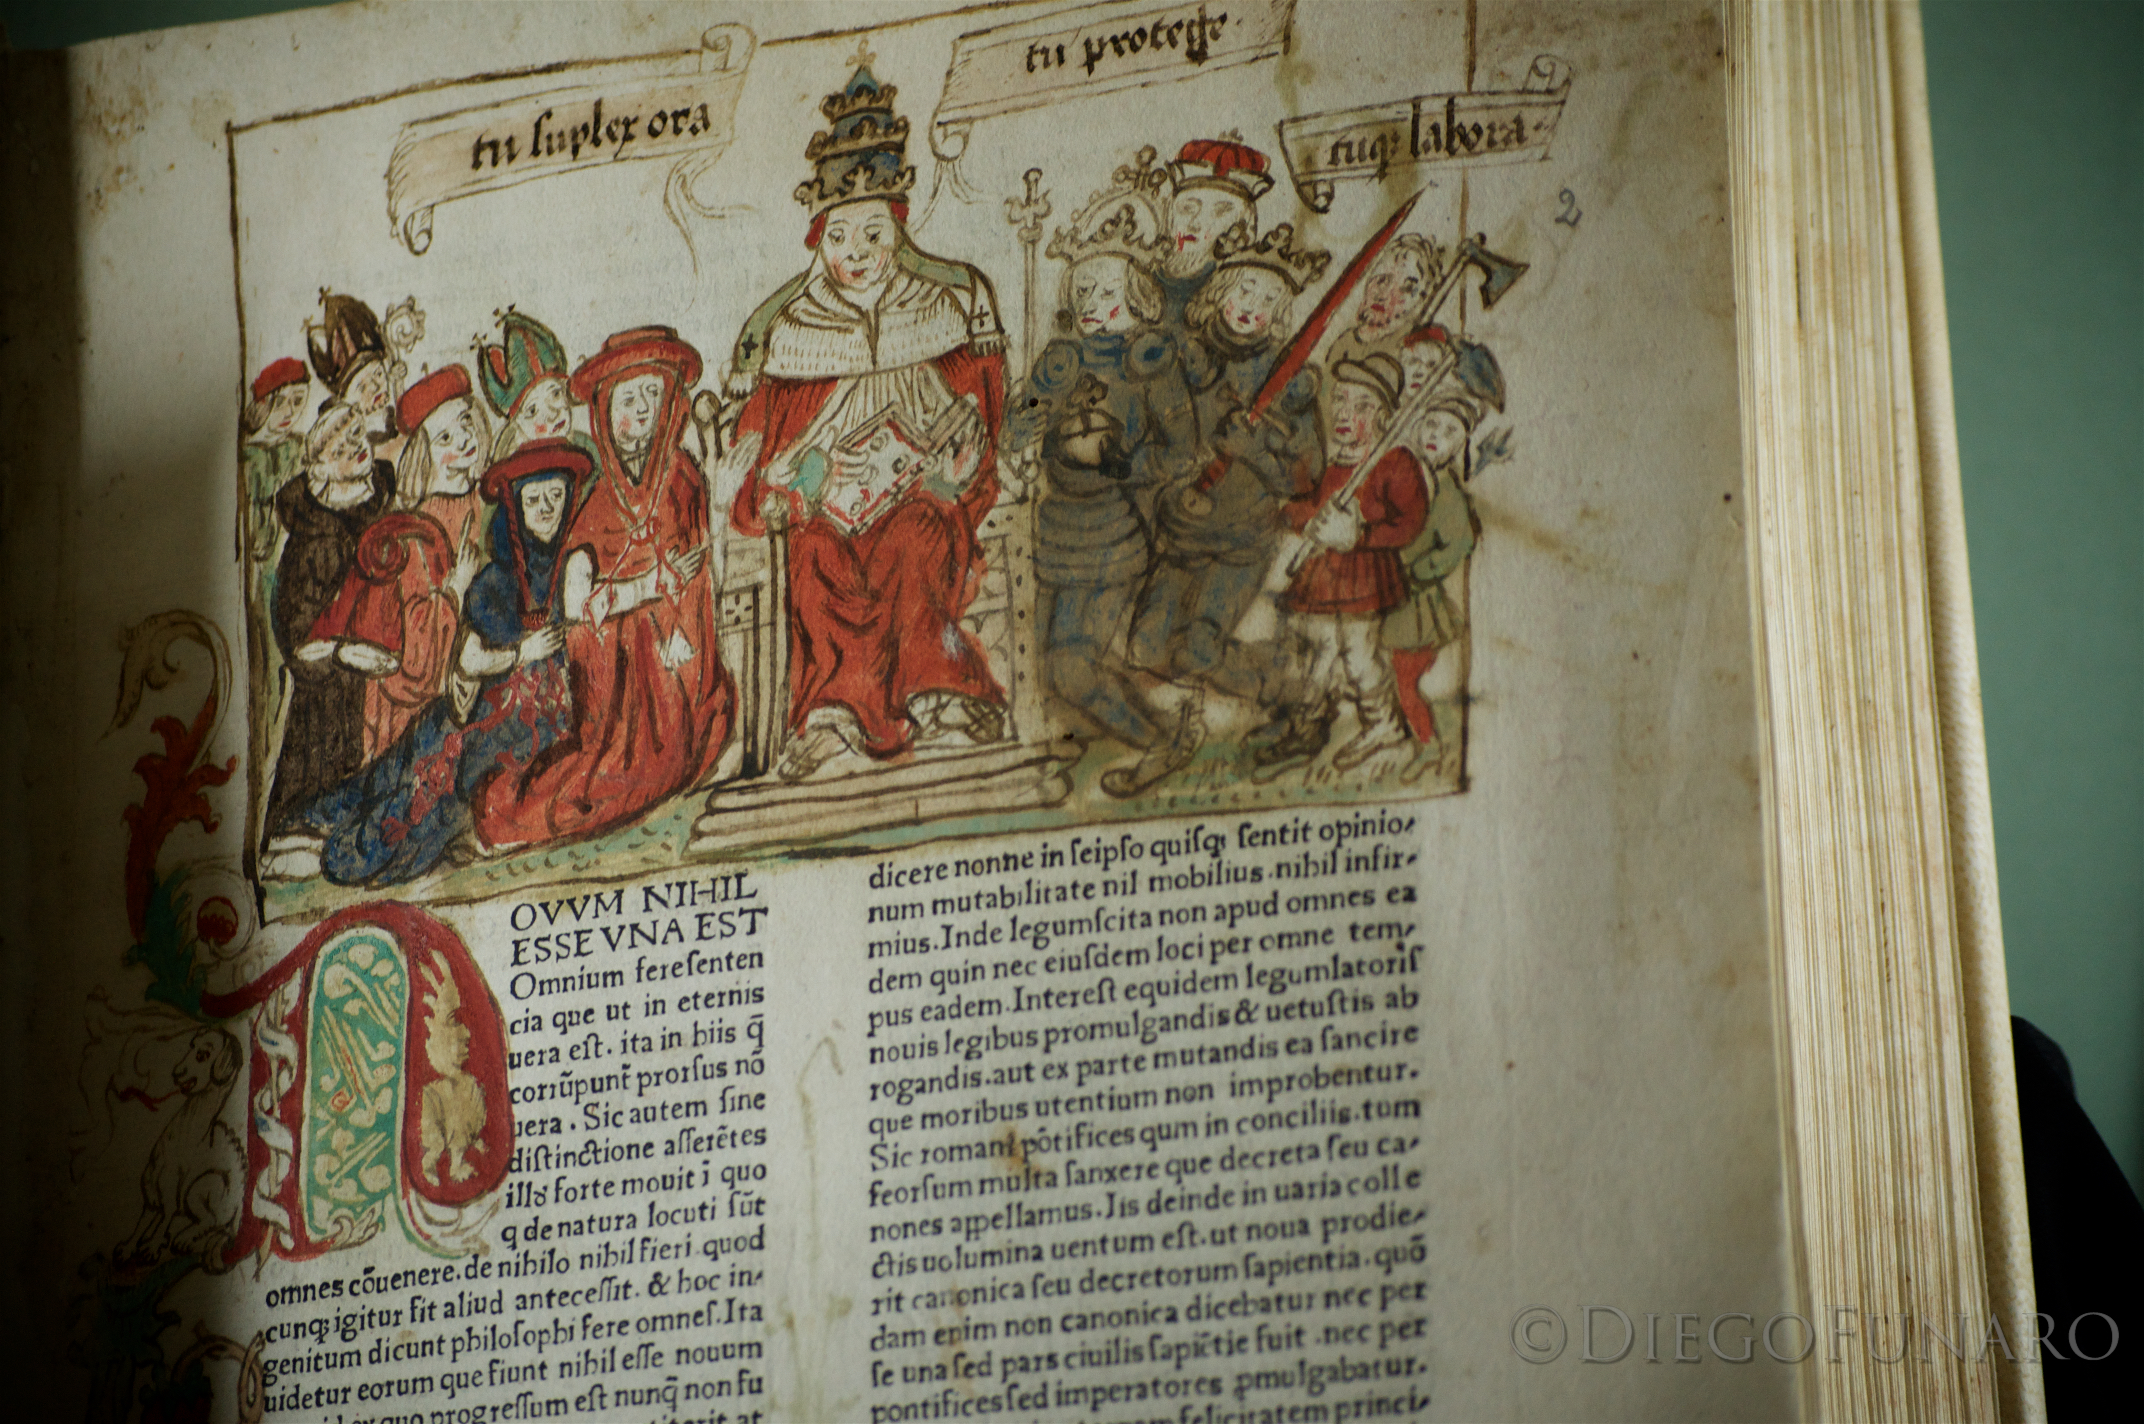 tu suplex ora
tu protege.
tuq; labora.
2
OVVM NIHIL
ESSE VNA EST
Omnium fere senten
cia que ut in eternis
uera est. ita in hiis q̄
corrūpunt̄ prorsus nō
uera. Sic autem sine
distinctione asserētes
ills forte mouit ī quo
q de natura locuti sūt
omnes cōuenere. de nihilo nihil fieri quod
cunq; igitur fit aliud antecessit. & hoc in-
genitum dicunt philosophi fere omnes. Ita
uidetur eorum que fiunt nihil esse nouum
quo progressum est nunq̄ non fu
dicere nonne in seipso quisq; sentit opinio-
num mutabilitate nil mobilius. nihil infir-
mius. Inde legum scita non apud omnes ea
dem quin nec eiusdem loci per omne tem-
pus eadem. Interest equidem legumlatoris
nouis legibus promulgandis & uetustis ab
rogandis. aut ex parte mutandis ea sancire
que moribus utentium non improbentur.
Sic romani pōtifices qum in conciliis. tum
seorsum multa sanxere que decreta seu ca-
nones appellamus. Iis deinde in uaria colle
ctis uolumina uentum est. ut noua prodie-
rit canonica seu decretorum sapientia. quō
dam enim non canonica dicebatur nec per
se una sed pars ciuilis sapiētie fuit. nec per
pontifices sed imperatores ꝓmulgabatur.
felicitatem princi-
©DIEGOFUNARO